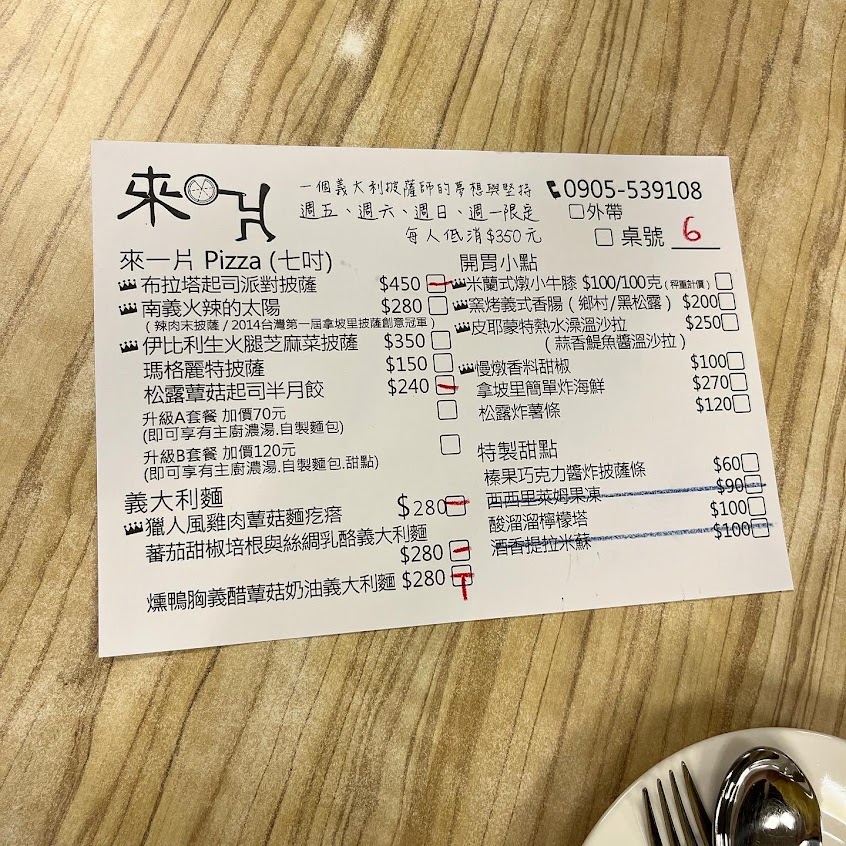 來一片
一個義大利披薩師的夢想與堅持
週五、週六、週日、週一限定
每人低消$350元
0905-539108
□外帶
□ 桌號 6
來一片 Pizza (七吋)
布拉塔起司派對披薩 $450
南義火辣的太陽 $280
(辣肉末披薩 / 2014台灣第一屆拿坡里披薩創意冠軍)
伊比利生火腿芝麻菜披薩 $350
瑪格麗特披薩 $150
松露蕈菇起司半月餃 $240
升級A套餐 加價70元
(即可享有主廚濃湯.自製麵包)
升級B套餐 加價120元
(即可享有主廚濃湯.自製麵包.甜點)
義大利麵
獵人風雞肉蕈菇麵疙瘩 $280
蕃茄甜椒培根與絲綢乳酪義大利麵
$280
燻鴨胸義醋蕈菇奶油義大利麵 $280
開胃小點
米蘭式燉小牛膝 $100/100克 (秤重計價)
窯烤義式香腸 ( 鄉村/黑松露 ) $200
皮耶蒙特熱水澡溫沙拉 $250
( 蒜香鯷魚醬溫沙拉 )
慢燉香料甜椒 $100
拿坡里簡單炸海鮮 $270
松露炸薯條 $120
特製甜點
榛果巧克力醬炸披薩條 $60
西西里萊姆果凍 $90
酸溜溜檸檬塔 $100
酒香提拉米蘇 $100